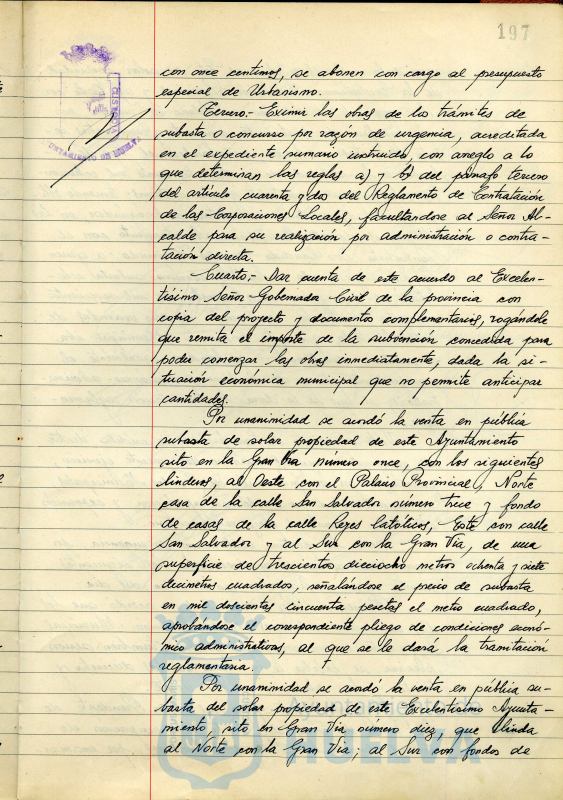 197
con once centimos, se abonen con cargo al presupuesto
especial de Urbanismo.
Tercero.- Eximir las obras de los trámites de
subasta o concurso por razón de urgencia, acreditada
en el expediente sumario instruido, con arreglo a lo
que determinan las reglas a) y b) del párrafo tercero
del artículo cuarenta y dos del Reglamento de Contratación
de las Corporaciones Locales, facultandose al Señor Al-
calde para su realización por administración o contra-
tación directa.
Cuarto.- Dar cuenta de este acuerdo al Excelen-
tísimo Señor Gobernador Civil de la provincia con
copia del proyecto y documentos complementarios, rogándole
que remita el importe de la subvención concedida para
poder comenzar las obras inmediatamente, dada la si-
tuación económica municipal que no permite anticipar
cantidades.
Por unanimidad se acordó la venta en pública
subasta de solar propiedad de este Ayuntamiento
sito en la Gran Vía número once, con los siguientes
linderos, al Oeste con el Palacio Provincial, Norte
casa de la calle San Salvador número trece y fondo
de casas de la calle Reyes Católicos, Este con calle
San Salvador y al Sur con la Gran Vía, de una
superficie de trescientos dieciocho metros ochenta y siete
decimetros cuadrados, señalándose el precio de subasta
en mil doscientas cincuenta pesetas el metro cuadrado,
aprobándose el correspondiente pliego de condiciones econó-
mico administrativas, al que se le dará la tramitación
reglamentaria.
Por unanimidad se acordó la venta en pública su-
basta del solar propiedad de este Excelentísimo Ayunta-
miento, sito en Gran Vía número diez que linda
al Norte con la Gran Vía; al Sur con fondos de
AYUNTAMIENTO DE HUELVA
HUELVA